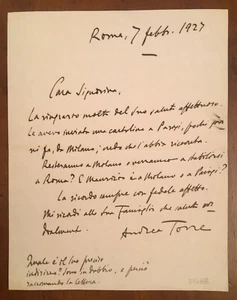 Roma, 7 febb. 1927
Cara Signorina,
La ringrazio molto del Suo saluto affettuoso.
Le avevo inviata una cartolina a Parigi, pochi giorni
fa, da Milano; credo che l'abbia ricevuta.
Resteranno a Milano o verranno a stabilirsi
a Roma? E Maurizio è a Milano o a Parigi?
La ricordo sempre con fedele affetto.
Mi ricordi alla Sua Famiglia che saluto
cordialmente.
Andrea Torre
Quale è il Suo preciso
indirizzo? Sono in dubbio, e perciò
raccomando la lettera.